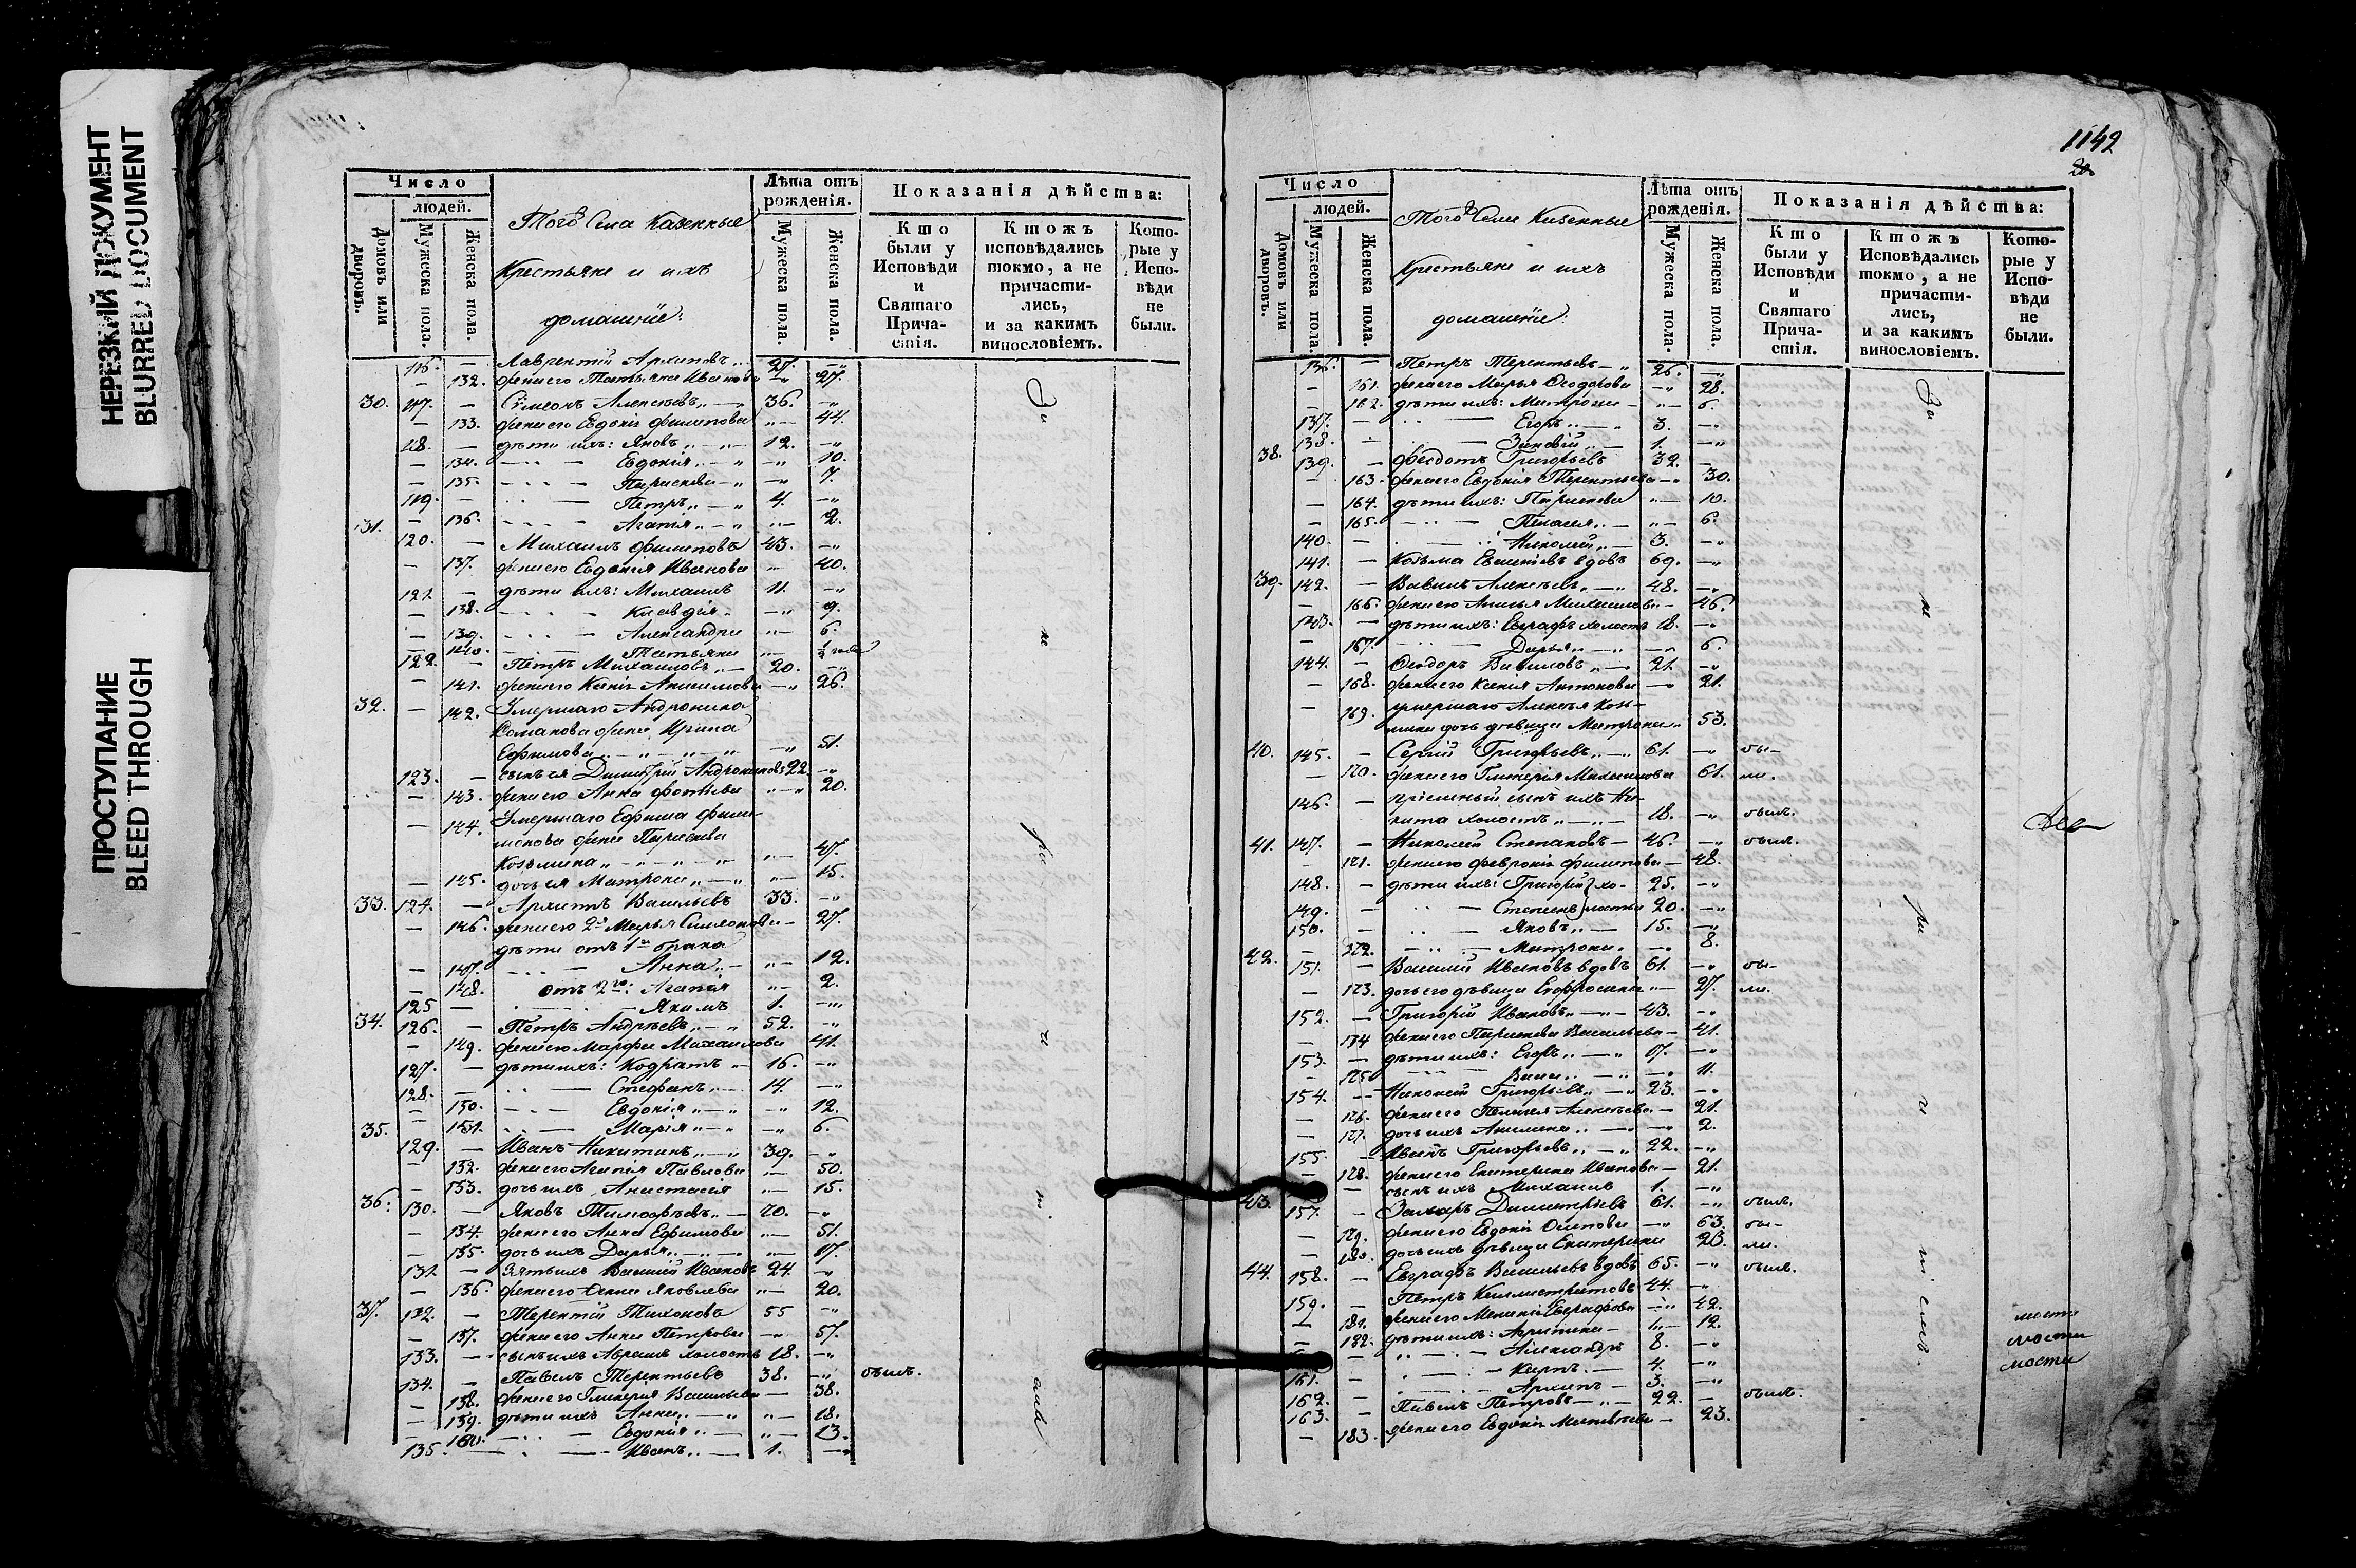 НЕРЕЗКИЙ ДОКУМЕНТ
BLURRED DOCUMENT
ПРОСТУПАНИЕ
BLEED THROUGH
Число
людей.
Домовъ или дворовъ.
Мужеска пола.
Женска пола.
Того Села Казенные
Крестьяне и ихъ
домашніе:
Лѣта отъ рожденія.
Мужеска пола.
Женска пола.
Показанія дѣйства:
Кто были у Исповѣди и Святаго Прича-стія.
Ктожъ исповѣдались токмо, а не причасти-лись, и за какимъ винословіемъ.
Кото-рые у Испо-вѣди не были.
116. — Лаврентій Архиповъ 27.
— 132. жена его Татьяна Иванова 27.
30. 117. — Сѵмеонъ Алексѣевъ 36.
— 133. жена его Евдокія Филипова 44.
118. — дѣти ихъ: Яковъ 12.
— 134. Евдокія 10.
— 135. Параскева 7.
119. — Петръ 4.
— 136. Агапія 2.
31. 120. — Михаилъ Филиповъ 43.
— 137. жена его Евдокія Иванова 40.
121. — дѣти ихъ: Михаилъ 11.
— 138. Клавдія 9.
— 139. Александра 6.
— 140. Татьяна ½ года
122. — Петръ Михаиловъ 20.
— 141. жена его Ксенія Анисимова 26.
32. — 142. Умершаго Андроника
Романова жена Ирина
Ефимова 51.
123. — сынъ ея Димитрій Андрониковъ 22.
— 143. жена его Анна Фотіева 20.
— 144. Умершаго Ефима Фили-
монова жена Параскева
Козьмина 47.
— 145. дочь ея Матрона 15.
33. 124. — Архипъ Васильевъ 33.
— 146. жена его 2я Марья Симеонова 27.
дѣти отъ 1го брака
— 147. Анна 12.
— 148. отъ 2го: Агапія 2.
125 — Якимъ 1.
34. 126. — Петръ Андреевъ 52.
— 149. жена его Марфа Михаилова 41.
127. — дѣти ихъ: Кодратъ 16.
128. — Стефанъ 14.
— 150. Евдокія 12.
— 151. Марія 6.
35. 129. — Иванъ Никитинъ 39.
— 152. жена его Агапія Павлова 50.
— 153. дочь ихъ Анастасія 15.
36. 130. — Яковъ Тимофѣевъ 70.
— 154. жена его Анна Ефимова 51.
— 155. дочь ихъ Дарья 17.
131 — Зять ихъ Василій Ивановъ 24.
— 156. жена его Анна Яковлева 20.
37. 132. — Терентій Тихоновъ 55
— 157. жена его Анна Петрова 57.
133. — сынъ ихъ Авраамъ холостъ 18.
134. — Павелъ Терентьевъ 38. былъ.
— 158. жена его Гликерія Васильева 38.
— 159. дѣти ихъ Анна 18.
— 160. Евдокія 13.
135. — Иванъ 1.
1142
Число
людей.
Домовъ или дворовъ.
Мужеска пола.
Женска пола.
Того Села Казенные
Крестьяне и ихъ
домашніе:
Лѣта отъ рожденія.
Мужеска пола.
Женска пола.
Показанія дѣйства:
Кто были у Исповѣди и Святаго Прича-стія.
Ктожъ Исповѣдались токмо, а не причасти-лись, и за какимъ винословіемъ.
Кото-рые у Испо-вѣди не были.
136. — Петръ Терентьевъ 26.
— 161. жена его Марья Ѳеодорова 28.
— 162. дѣти ихъ: Матрона 6.
137. — Егоръ 3.
138. — Зиновій 1.
38. 139. — Федотъ Григорьевъ 32.
— 163. жена его Евдокія Терентьева 30.
— 164. дѣти ихъ: Параскева 10.
— 165. Пелагея 6.
140. — Николай 3.
141. — Козьма вдовъ 69.
39. 142. — Вавилъ Алексѣевъ 48.
— 166. жена его Анисья Михаилова 46.
143. — дѣти ихъ: Евграфъ холостъ 18.
— 167. Дарья 6.
144. — Ѳеодоръ Вавиловъ 21.
— 168. жена его Ксенія Антонова 21.
— 169. умершаго Алексѣя Козь-
мина дочь дѣвица Матрона 53.
40. 145. — Сергій Григорьевъ 61. бы-
— 170. жена его Гликерія Михаилова 61. ли.
146. — пріемный сынъ ихъ Ни-
кита холостъ 18. былъ.
41. 147. — Николай Степановъ 46. былъ.
171. жена его Февронія Филипова 48.
148. — дѣти ихъ: Григорій хо- 25.
149. — Степанъ лосты 20.
150. — Яковъ 15.
— 172. Матрона 8.
42. 151. — Василій Ивановъ вдовъ 61. бы-
— 173. дочь его дѣвица Евфросинія 27. ли.
152. — Григорій Ивановъ 43.
— 174 жена его Параскева Васильева 41.
153. — дѣти ихъ: Егоръ 17.
— 175 Васса 11.
154. — Николай Григорьевъ 23.
— 176. жена его Пелагея Алексѣева 21.
— 177. дочь ихъ Акилина 2.
155. — Иванъ Григорьевъ 22.
— 178. жена его Екатерина Иванова 21.
— сынъ ихъ Михаилъ 1.
43. 157. — Захаръ Димитріевъ 61. былъ.
— 179. жена его Евдокія Осипова 63. бы-
— 180. дочь ихъ дѣвица Екатерина 23. ли.
44. 158. — Евграфъ Васильевъ вдовъ 65. былъ.
159. — Петръ Каллистратовъ 44.
— 181. жена его Меланія Евграфова 42.
— 182. дѣти ихъ: Агрипина 12.
— Александръ 8.
161. — Карпъ 4.
162. — Архипъ 3.
163. — Павелъ Петровъ 22. былъ.
— 183. жена его Евдокія Матвѣева 23.